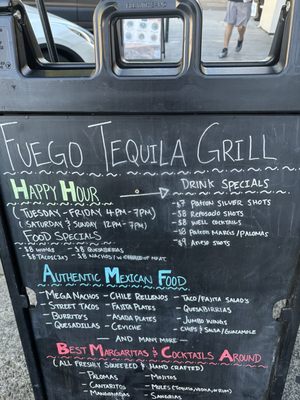 Fuego Tequila Grill
Happy Hour
(Tuesday - Friday 4pm-7pm)
(Saturday & Sunday 12pm-7pm)
Food Specials
$8 Wings - $8 Quesabirrias
$8 Tacos(3) $8 Nachos w/ Choice of Meat
Drink Specials
$7 Patron Silver Shots
$8 Reposado Shots
$8 Well Cocktails
$8 Patron Margs/Palomas
$9 Añejo Shots
Authentic Mexican Food
- Mega Nachos - Chile Rellenos
- Street Tacos - Fajita Plates
- Burritos - Asada Plates
- Quesadillas - Ceviche
- Taco/Fajita Salad's
- Quesabirrias
- Jumbo Wings
- Chips & Salsa/Guacamole
- And Many More -
Best Margaritas & Cocktails Around
(All Freshly Squeezed & Hand Crafted)
- Palomas - Mojitos
- Cantaritos - Mules (Tequila, Vodka, or Rum)
- Mangonadas - Sangrias